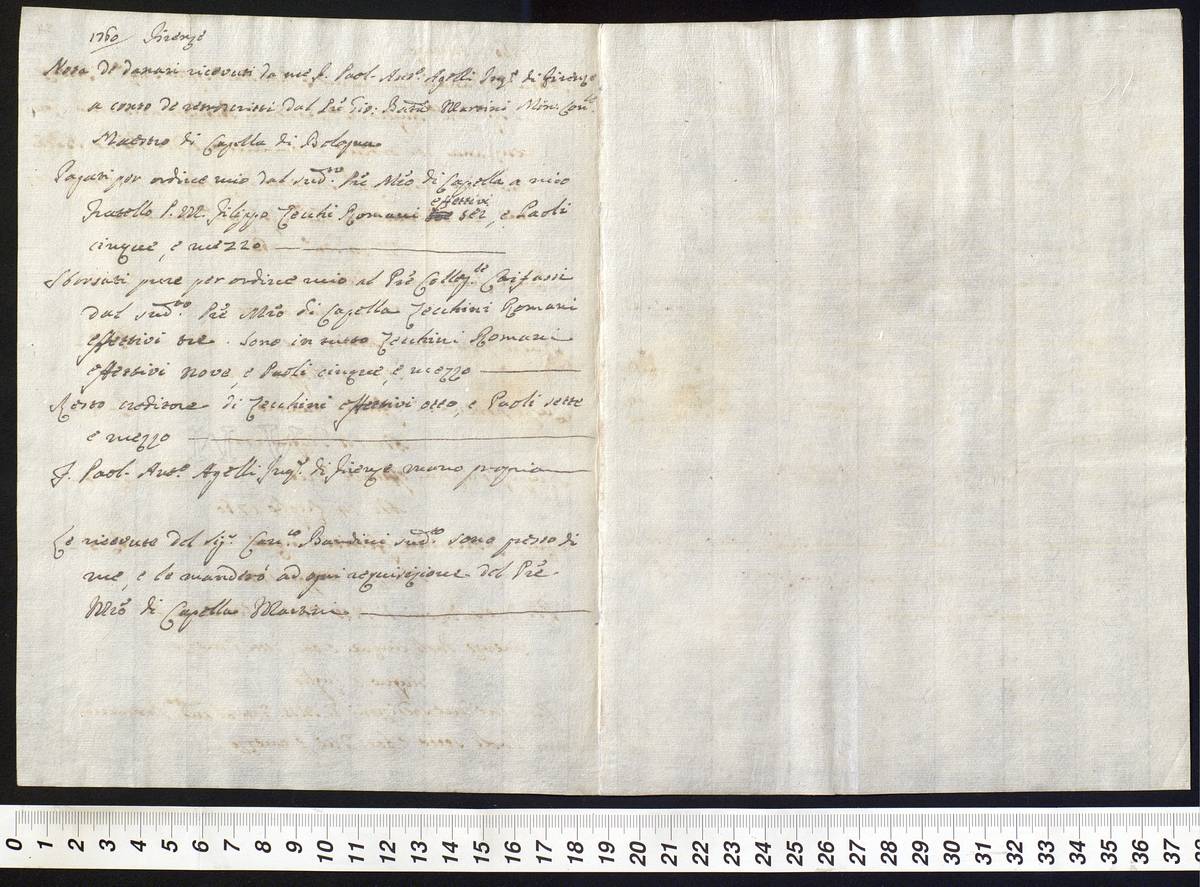 1760 Firenze
Nota de danari ricevuti da me F. Paol. Anto. Agelli Inqr. di Firenze
a conto de retroscritti dal Pre. Gio: Batta. Martini Min: Conle.
Maestro di Capella di Bologna
Pagati per ordine mio dal sudo. Pre. Mro. di Capella a mio
fratello P. M. Filippo Zecchi Romani effettivi sei, e Paoli
cinque, e mezzo
Sborsati pure per ordine mio al Pre. Collegle.
dal sudto. Pre. Mro. di Capella Zecchini Romani
effettivi tre. sono in tutto Zecchini Romani
effettivi nove, e Paoli cinque, e mezzo
Resto creditore di Zecchini effettivi otto, e Paoli sette
e mezzo
F. Paol. Anto. Agelli Inqr. di Firenze mano propria
Le ricevute del Sigr. Canco. Bandini sudto. sono presso di
me, e le manderò ad ogni requisizione del Pre.
Mro. di Capella Martini
0 1 2 3 4 5 6 7 8 9 10 11 12 13 14 15 16 17 18 19 20 21 22 23 24 25 26 27 28 29 30 31 32 33 34 35 36 37 38